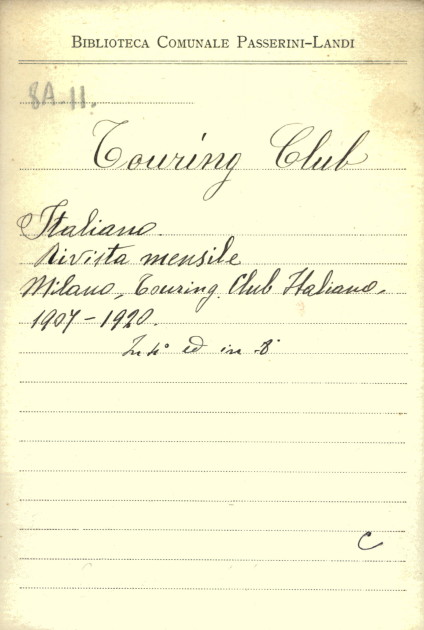 BIBLIOTECA COMUNALE PASSERINI-LANDI
8A-11.
Touring Club
Italiano.
Rivista mensile
Milano, Touring Club Italiano,
1907-1920.
In 4° ed in 8°
C